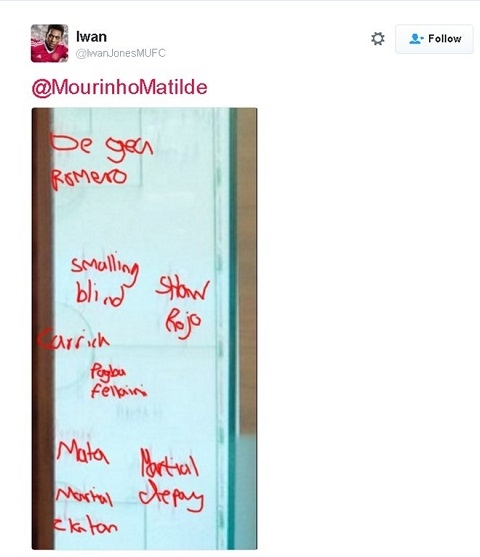 Iwan
@IwanJonesMUFC
Follow
@MourinhoMatilde
De gea
Romero
smalling
blind
Shaw
Rojo
Carrick
Pogba
fellaini
Mata
Martial
Zlatan
Martial
depay